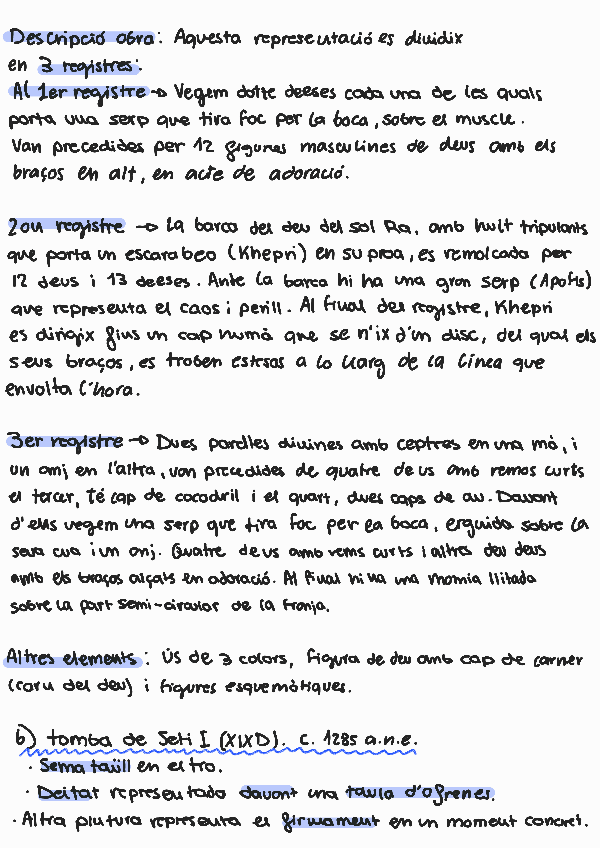 Descripció obra: Aquesta representació es dividix
en 3 registres:
Al 1er registre → Vegem dotte deeses cada una de les quals
porta una serp que tira foc per la boca, sobre el muscle.
Van precedides per 12 figures masculines de deus amb els
braços en alt, en acte de adoració.
2on registre → la barca del deu del sol Ra, amb huit tripulants
que porta un escarabeo (Khepri) en su proa, es remolcada per
12 deus i 13 deeses. Ante la barca hi ha una gran serp (Apofis)
que representa el caos i perill. Al final del registre, Khepri
es dirigix fins un cap humà que se n'ix d'un disc, del qual els
seus braços, es troben estesas a lo llarg de la línea que
envolta l'hora.
3er registre → Dues parelles divines amb ceptres en una mà, i
un anj en l'altra, van precedides de quatre deus amb remos curts
el tercer, té cap de cocodril i el quart, dues caps de au. Davant
d'ells vegem una serp que tira foc per la boca, erguida sobre la
seva cua i un anj. Quatre deus amb rems curts i altres deu deus
amb els braços alçats en adoració. Al final hi ha una momia llitada
sobre la part semi-circular de la franja.
Altres elements: Ús de 3 colors, figura de deu amb cap de carner
(caru del deu) i figures esquemàtiques.
b) tomba de Seti I (XIXD). c. 1285 a.n.e.
· Sema taüll en el tro.
· Deitat representada davant una taula d'ofrenes.
· Altra pintura representa el firmament en un moment concret.